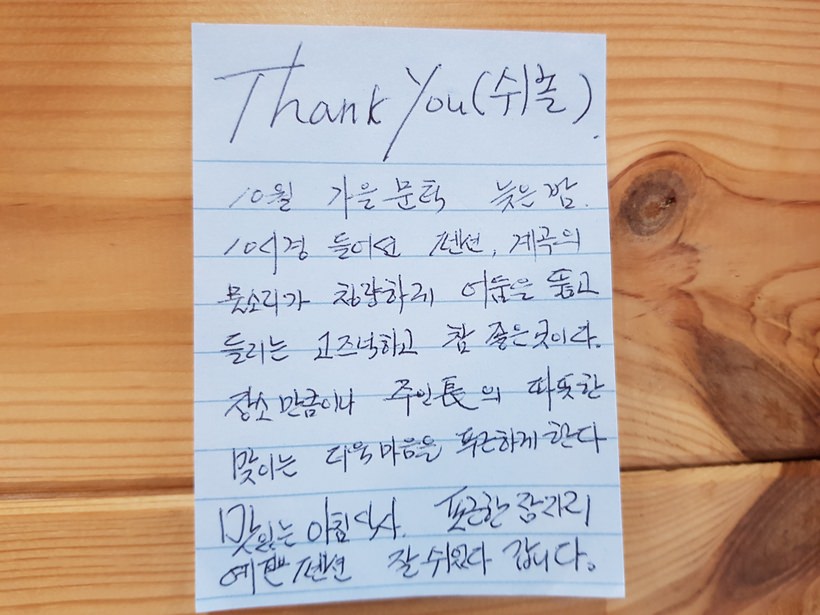 Thank You (쉬놀).
10월 가을 문턱 늦은 밤.
10시경 들어선 펜션, 계곡의
물소리가 청량하게 어둠을 뚫고
들리는 고즈넉하고 참 좋은 곳이다.
장소만큼이나 주인長의 따뜻한
맞이는 더욱 마음을 푸근하게 한다
맛있는 아침식사. 푸근한 잠자리
예쁜 펜션 잘 쉬었다 갑니다.